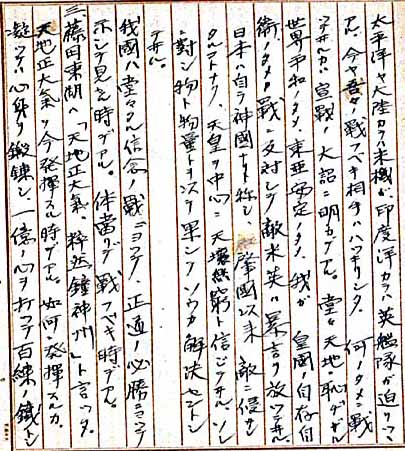 太平洋ヤ大陸カラハ米機ガ印度洋カラハ英艦隊ガ迫リツヽ
アル。今ヤ吾々ノ戦フベキ相手ハハッキリシタ。何ノタメニ戦
フテヰルカハ宣戦ノ大詔ニ明カデアル。堂々天地ニ恥ヂザル
世界平和ノタメ、東亜安定ノタメ、我ガ皇国ノ自存自
衛ノタメノ戦ニ反対シテ敵米英ハ暴言ヲ放ツテヰル。
日本ハ自ラ神国ナドト称シ肇国以来敵ニ侵サレ
タルコトナク、天皇ヲ中心ニ天壌無窮ト信ジテヰル、ソレ
ニ対シ物ト物量トヲ以テ軍シテソウカ解決セント
テヰル。
我国ハ堂々タル信念ノ戦ニヨツテ、正道ノ必勝ニヨツテ
示シテ見ル時デアル。体当リデ戦フベキ時デアル。
三、藤田東湖ハ「天地正大気、粋然鐘神州」ト言ツタ。
天地正大気ヲ今発揮スル時デアル。如何ニ発揮スルカ。
凝ツテハ心身ヲ鍛錬シ一億ノ心ヲ打ツテ百練ノ鉄トシ